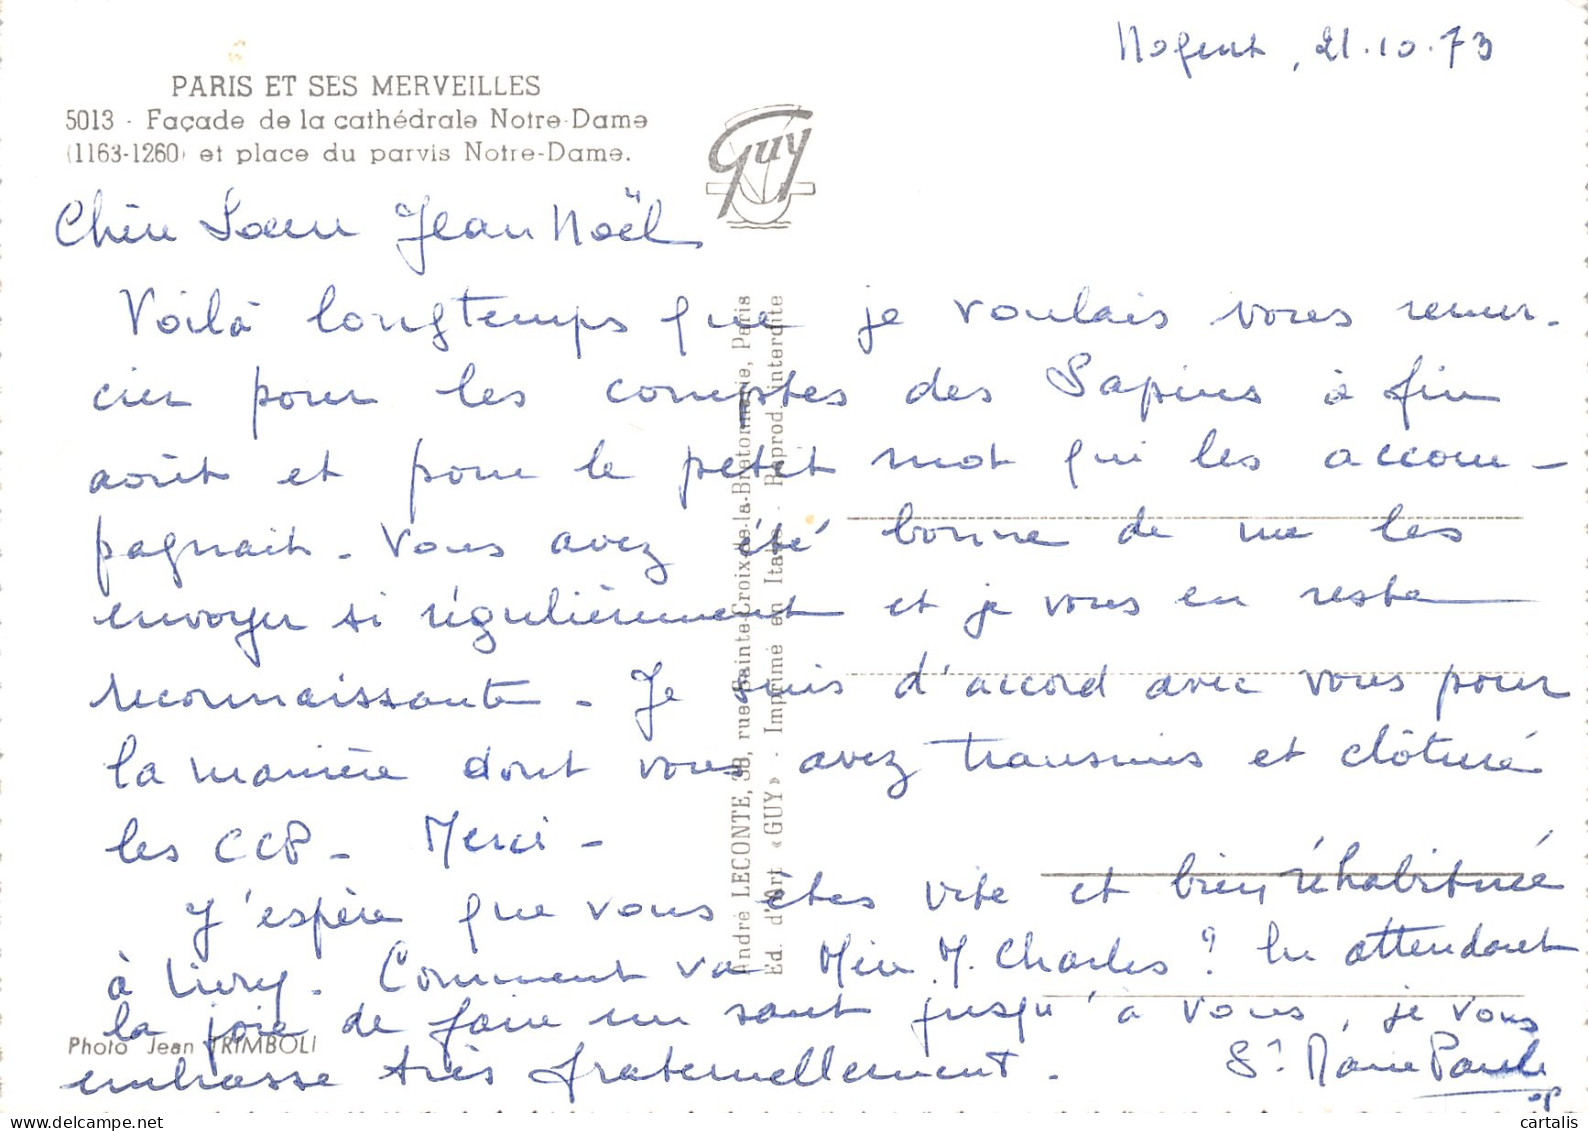 Nogent, 21.10.73
PARIS ET SES MERVEILLES
5013 - Façade de la cathédrale Notre-Dame
(1163-1260) et place du parvis Notre-Dame.
Guy
Chère Soeur Jean Noël
Voilà longtemps que je voulais vous remer-
cier pour les comptes des Sapins à fin
août et pour le petit mot qui les accom-
pagnait. Vous avez été bonne de me les
envoyer si régulièrement et je vous en reste
reconnaissante. Je suis d'accord avec vous pour
la manière dont vous avez transmis et clôturé
les CCP. Merci.
J'espère que vous êtes vite et bien réhabituée
à Livry. Comment va Mère M. Charles ? En attendant
la joie de faire un saut jusqu'à vous, je vous
embrasse très fraternellement. Sr Marie Paule
op
André LECONTE, 38, rue Sainte-Croix-de-la-Bretonnerie, Paris
Ed. d'Art «GUY» - Imprimé en Italie - Reprod. interdite
Photo Jean TRIMBOLI
cartalis
https://www.delcampe.net